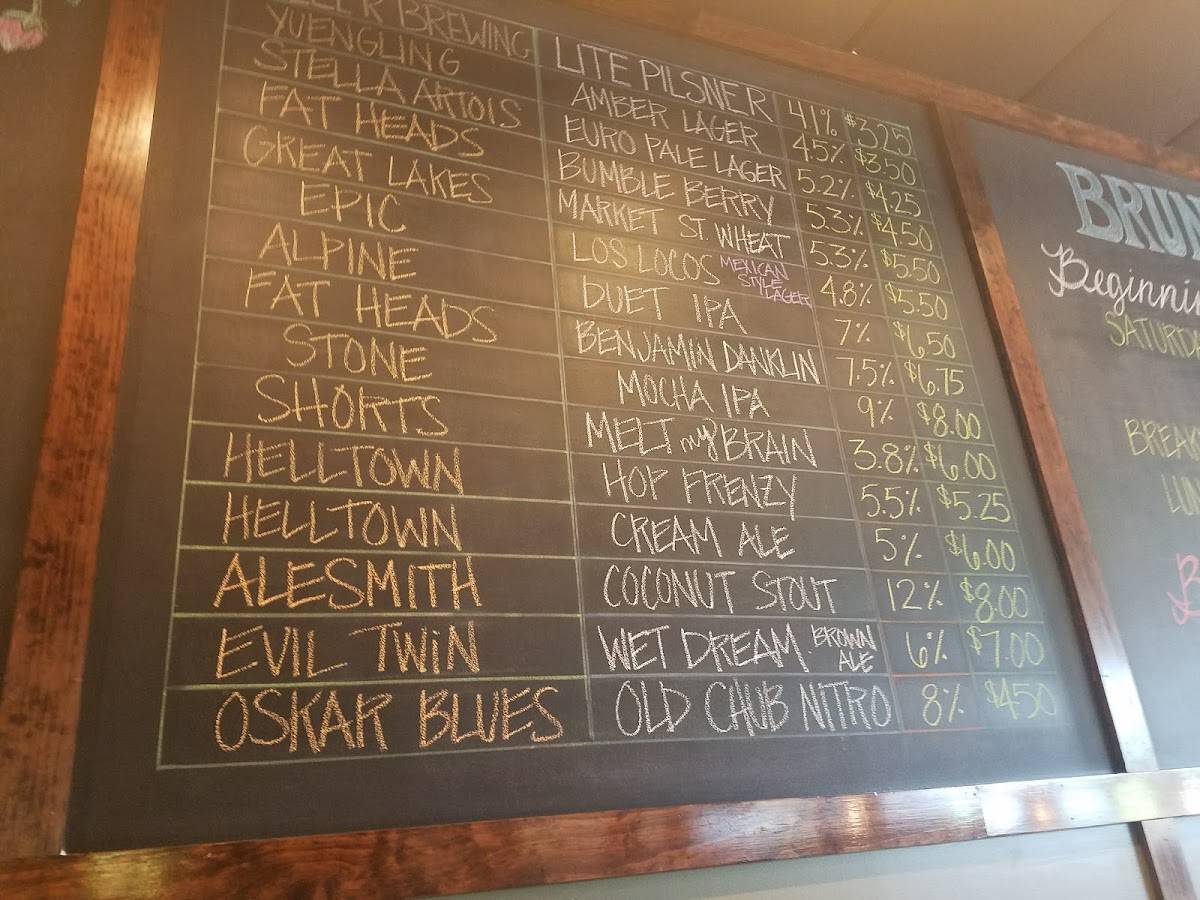 BREWING LITE PILSNER 41% $3.25
YUENGLING AMBER LAGER 4.5% $3.50
STELLA ARTOIS EURO PALE LAGER 5.2% $4.25
FAT HEADS BUMBLE BERRY 5.3% $4.50
GREAT LAKES MARKET ST. WHEAT 5.3% $5.50
EPIC LOS LOCOS MEXICAN STYLE LAGER 4.8% $5.50
ALPINE DUET IPA 7% $6.50
FAT HEADS BENJAMIN DANKLIN 7.5% $6.75
STONE MOCHA IPA 9% $8.00
SHORTS MELT my BRAIN 3.8% $6.00
HELLTOWN HOP FRENZY 5.5% $5.25
HELLTOWN CREAM ALE 5% $6.00
ALESMITH COCONUT STOUT 12% $8.00
EVIL TWiN WET DREAM BROWN ALE 6% $7.00
OSKAR BLUES OLD CHUB NITRO 8% $4.50
BRUN
Beginni
SATURDA
BREAK
LUN
B